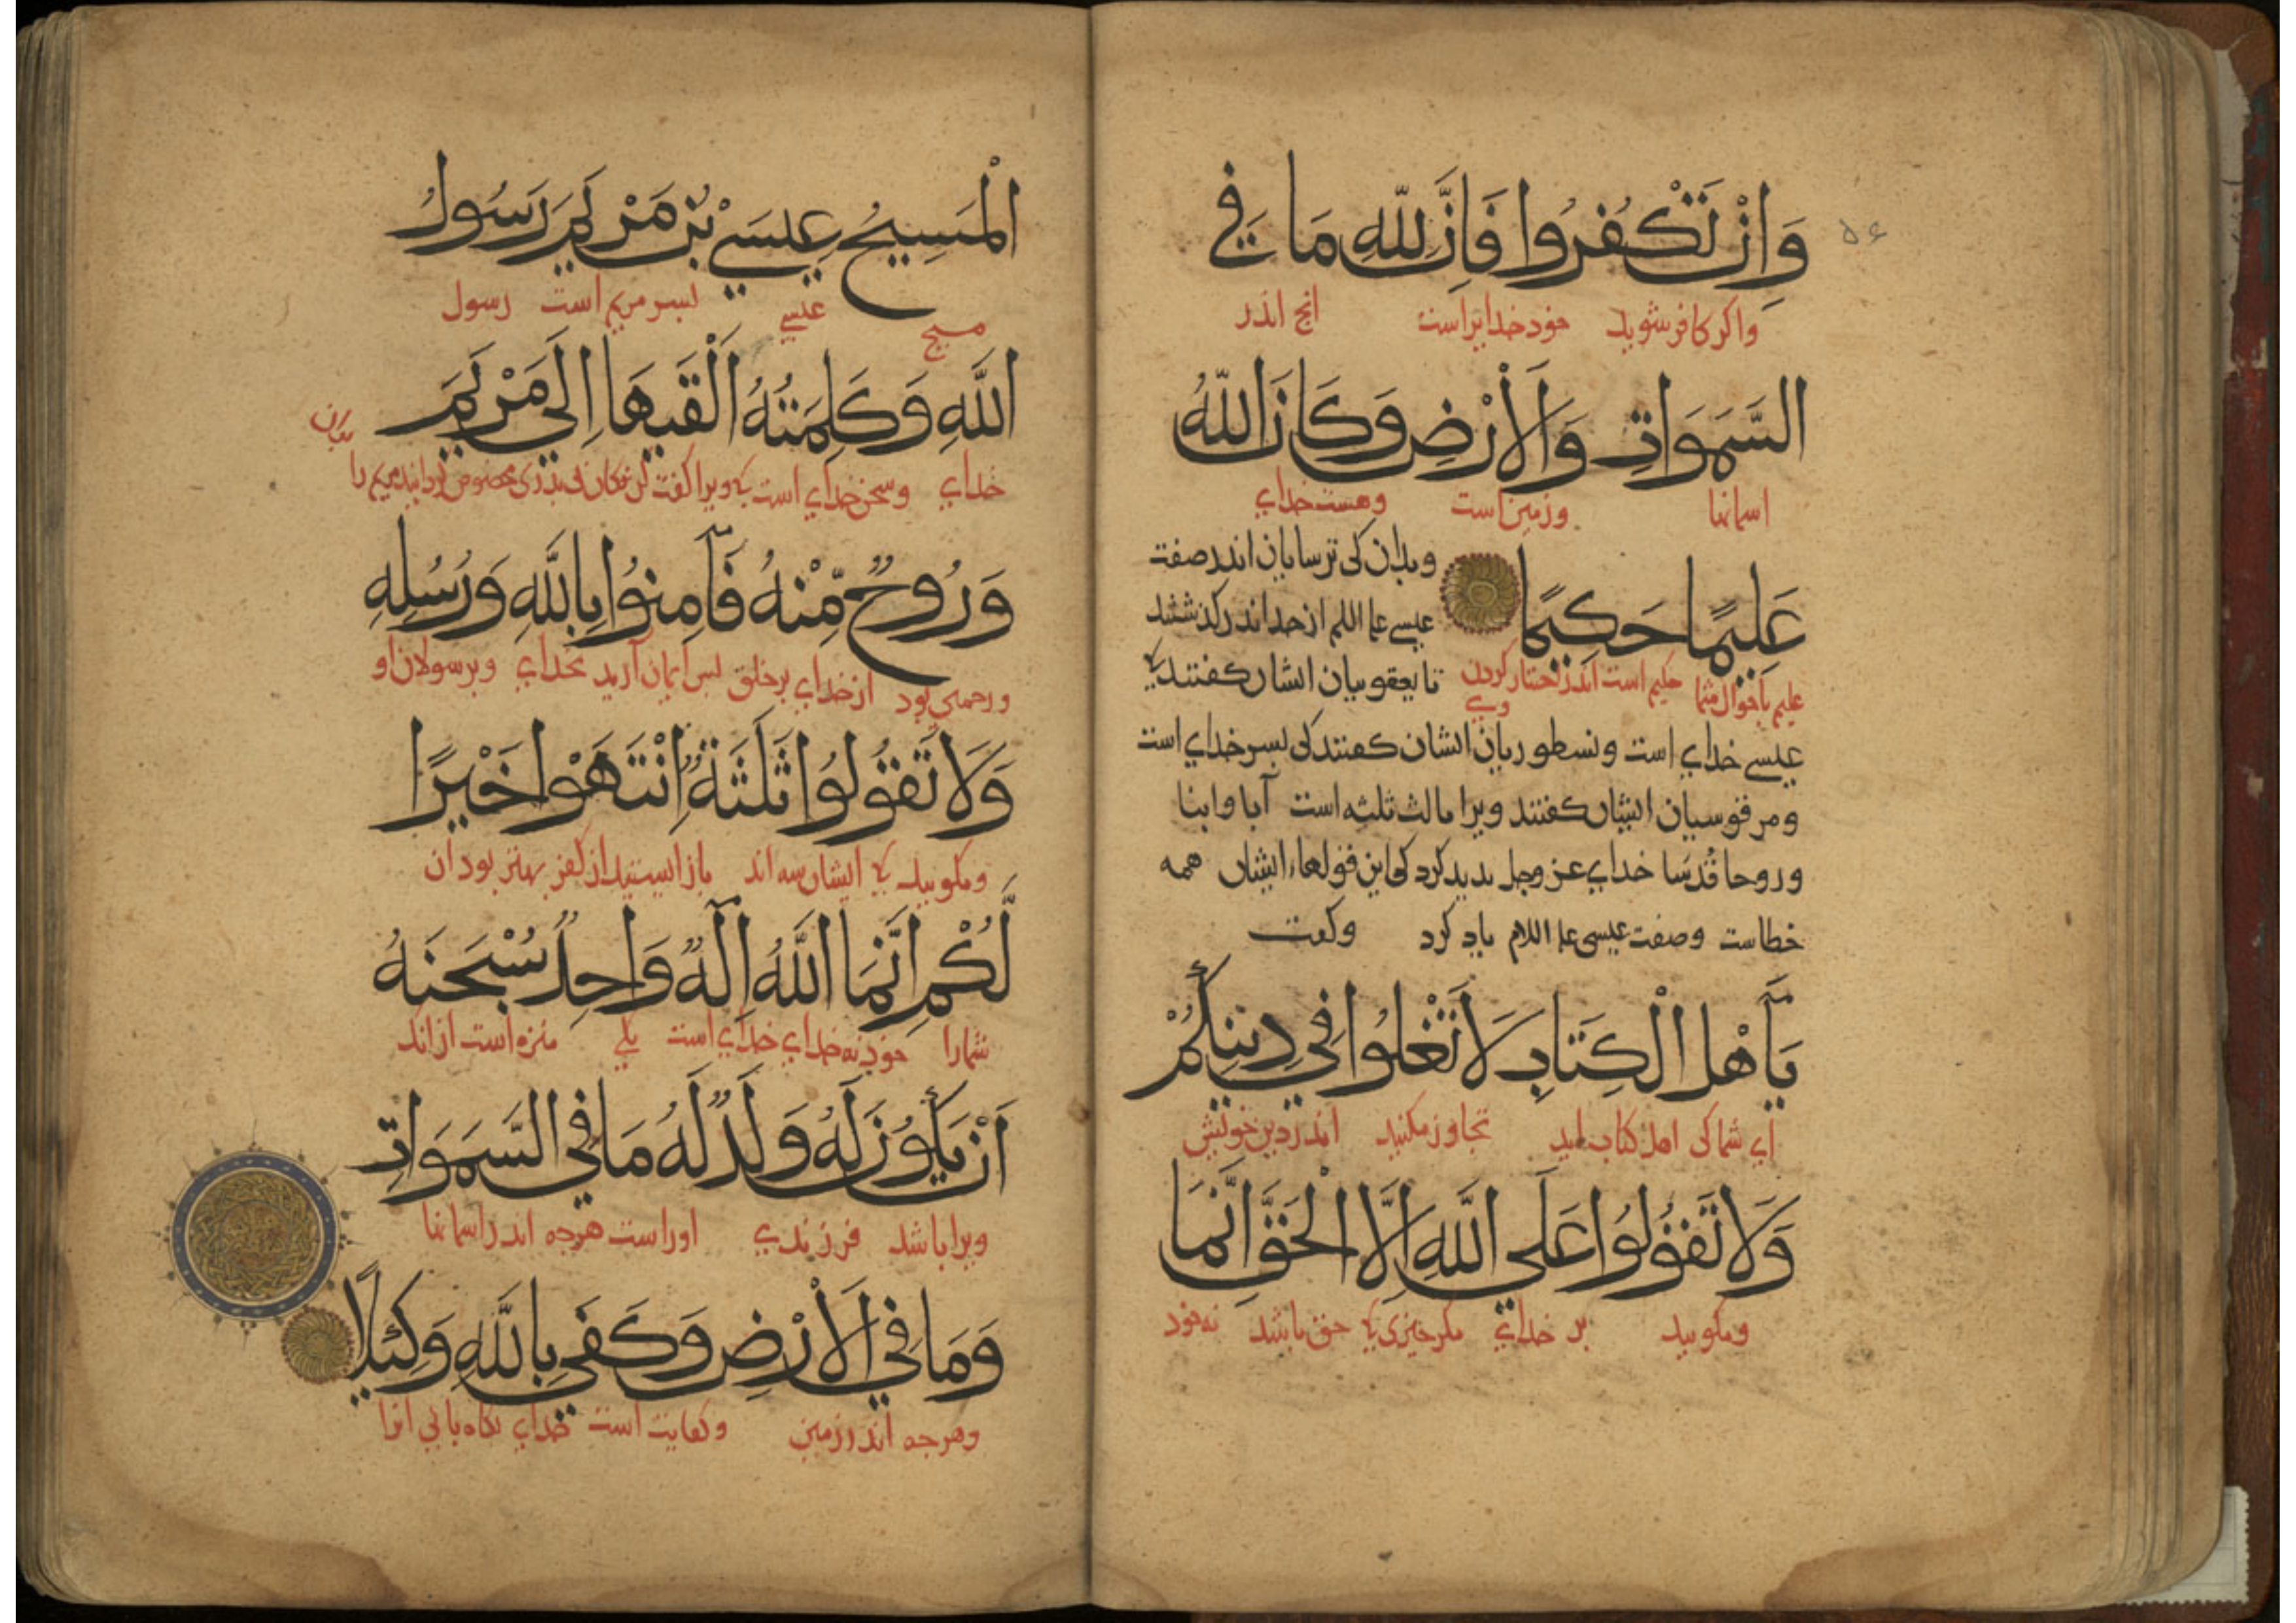 ٥٤
وَاِنْ تَكْفُرُوا فَاِنَّ لِلّٰهِ مَا فِي
واكر كافر شويد خود خدايراست انج اندر
السَّمَوَاتِ وَالْاَرْضِ وَكَانَ اللّٰهُ
اسمانها وزمين است وهست خداي
عَلِيمًا حَكِيمًا
وبدان كي ترسايان اندر صفت
عيسي علم اللم از حد اندر كذشتند
عليم باحوال شما حكيم است اندر اختيار كردن وي
تا يعقوبيان ايشان كفتند ك
عيسي خداي است ونسطوريان ايشان كفتند كي بسر خداي است
ومرقوسيان ايشان كفتند ويرا ثالث ثلثه است آبا وابنا
وروحا قُدسَا خداي عز وجل بديد كرد كي اين قولهاء ايشان همه
خطاست وصفت عيسي علم اللام ياد كرد وكفت
يَآاَهْلَ الْكِتَابِ لَا تَغْلُوا فِي دِينِكُمْ
اي شما كي اهل كتاب ايد تجاوز مكنيد اندر دين خويش
وَلَا تَقُولُوا عَلَى اللّٰهِ اِلَّا الْحَقَّ اِنَّمَا
ومكوييد بر خداي مكر جيزي ك حق باشد نه خود
الْمَسِيحُ عِيسَى بْنُ مَرْيَمَ رَسُولُ
مسيح عيسي بسر مريم است رسول
اللّٰهِ وَكَلِمَتُهُ اَلْقَيهَا اِلَى مَرْيَمَ
خداي وسخن خداي است ك ويرا كفت كن فكان مريم را
وَرُوحٌ مِّنْهُ فَآمِنُوا بِاللّٰهِ وَرُسُلِهِ
ورحمتي بود از خداي بر خلق بس ايمان آريد بخداي وبرسولان او
وَلَا تَقُولُوا ثَلَثَةٌ اِنْتَهَوْا خَيْرًا
ومكوييد ك ايشان سه اند باز ايستيد از كفر بهتر بود آن
لَّكُمْ اِنَّمَا اللّٰهُ اِلَهٌ وَاحِدٌ سُبْحَنَهُ
شمارا خود نه خداي خداي است يكي منزه است از انك
اَنْ يَكُونَ لَهُ وَلَدٌ لَهُ مَا فِي السَّمَوَاتِ
ويرا باشد فرزندي اوراست هرجه اندر اسمانها
وَمَا فِي الْاَرْضِ وَكَفَى بِاللّٰهِ وَكِيلًا
وهرجه اندر زمين وكفايت است خداي نكاه باني انرا